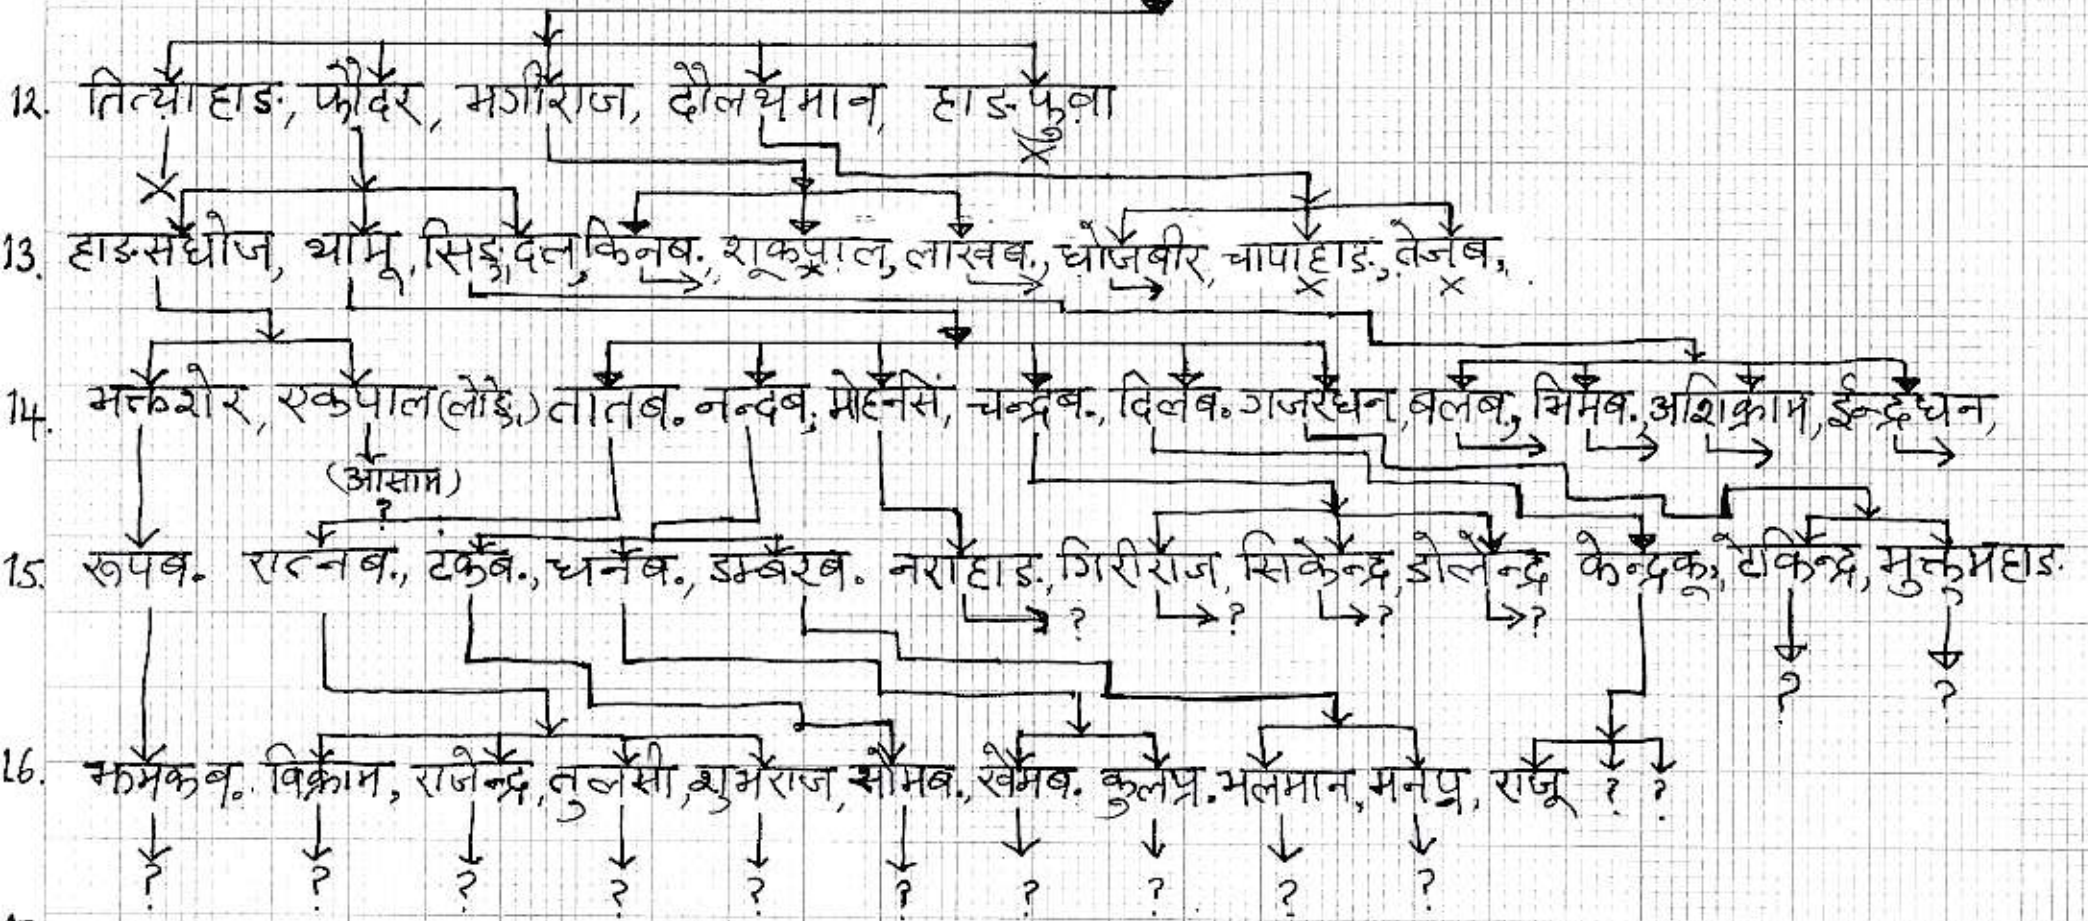 12. तित्याहाङ, फौदर, मगीराज, दौलथमान, हाङफुवा
13. हाङसधोज, थामू, सिङ्दल, किनब., शूकपाल, लाखब., धोजबीर, चापाहाङ, तेजब,
14. भक्तशेर, एकपाल (लोङे) तातब. नन्दब, मोहनसिं, चन्द्रब., दिलब. गजरधन, बलब., भिमब., अशिक्राम, ईन्द्रधन,
(आसाम)
?
15. रूपब. रात्नब., टकब., धनब., डम्बरब. नराहाङ, गिरीराज, सिकेन्द्र, डोलेन्द्र केन्द्रकू, टेकेन्द्र, मुक्तुमहाङ
? ? ? ?
? ?
16. झमकब. विक्राम, राजेन्द्र, तुलसी, शुभराज, सोमब., खेमब. कुलप्र. भलमान, मनप्र, राजू ? ?
? ? ? ? ? ? ? ? ? ?